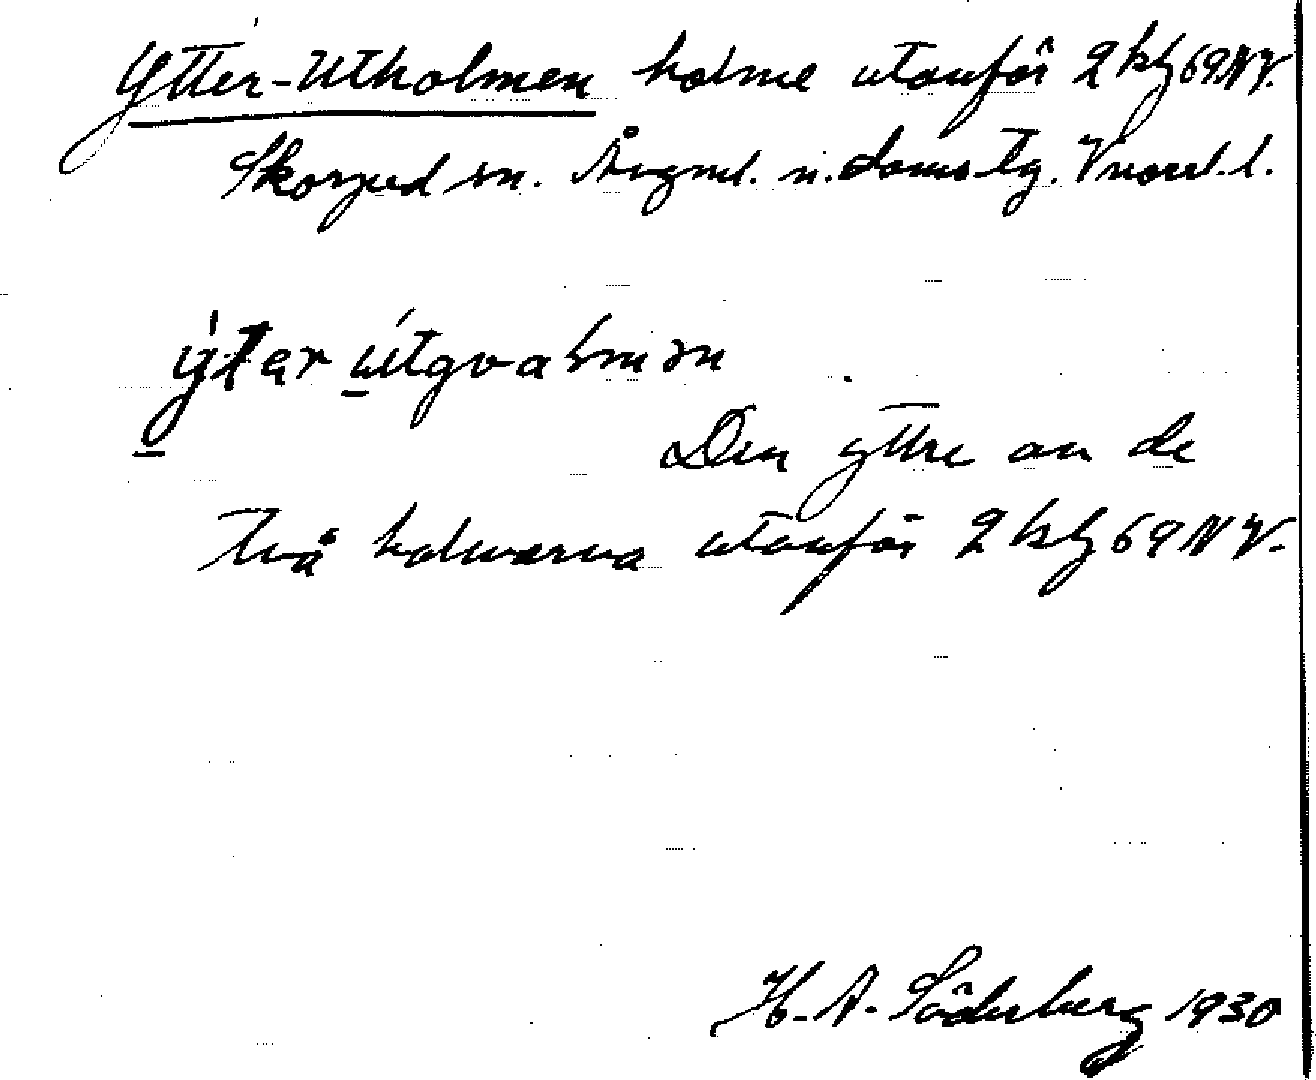 Ytter-Utholmen holme utanför 2 kg 69 NV.
Skorped sn. Ångml. n. doms-tg. Vnorrl. l.
Den yttre av de
två holmarna utanför 2 kg 69 NV.
H. A. Söderberg 1930